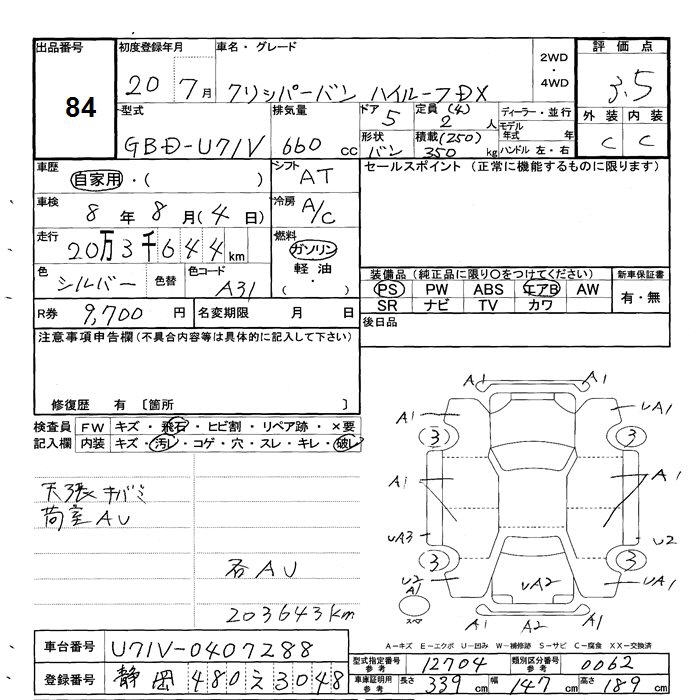 出品番号 84
初度登録年月 20 7月
車名・グレード クリッパーバン ハイルーフDX
2WD ・ 4WD
評価点 3.5
型式 GBD-U71V
排気量 660 cc
ドア 5
形状 バン
定員 (4) 2 人
積載 (250) 350 kg
ディーラー・並行
モデル年式 年
ハンドル 左・右
外装 内装
C C
車歴 自家用・( )
シフト AT
セールスポイント (正常に機能するものに限ります)
車検 8年8月(4日)
冷房 A/C
走行 20万3千644km
燃料 ガソリン 軽油 ・( )
色 シルバー 色替 色コード A31
装備品 (純正品に限り○をつけてください)
新車保証書
PS PW ABS エアB AW
SR ナビ TV カワ
有・無
R券 9,700 円 名変期限 月 日
後日品
注意事項申告欄 (不具合内容等は具体的に記入して下さい)
修復歴 有 〔箇所 〕
検査員 FW キズ・飛石・ヒビ割・リペア跡・×要
記入欄 内装 キズ・汚レ・コゲ・穴・スレ・キレ・破レ
天張キバミ
荷室AU
右AU
203643km
A1 A1
A1 UA1
3 3
A1 A1
UA3 U2
3 3
U2 UA2 UA1
A1
スペア
A1 A2 A1
A-キズ E-エクボ U-凹み W-補修跡 S-サビ C-腐食 XX-交換済
車台番号 U71V-0407288
型式指定番号 参考 12704 類別区分番号 参考 0062
登録番号 静岡 480 え 3048
車庫証明用 参考 長さ 339 cm 幅 147 cm 高さ 189 cm